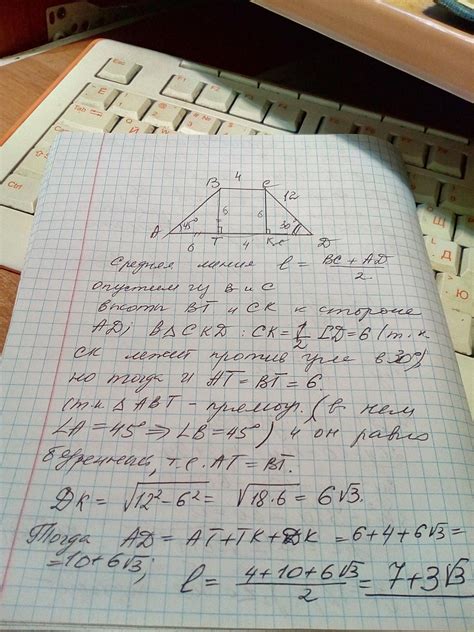 4
B C 12
A 45° 6 6 30° D
6 T 4 K
Средняя линия l = (BC + AD)/2
опустим из B и C
высоты BT и CK к стороне
AD; В △CKD : CK = 1/2 CD = 6 (т.к
CK лежит против угла в 30°)
но тогда и AT = BT = 6.
(т.к △ABT - прямоуг. (в нем
∠A = 45° ⇒ ∠B = 45°) и он равно
бедренный, т.е. AT = BT.
DK = √(12² - 6²) = √(18·6) = 6√3.
Тогда AD = AT + TK + DK = 6 + 4 + 6√3 =
= 10 + 6√3; l = (4 + 10 + 6√3)/2 = 7 + 3√3